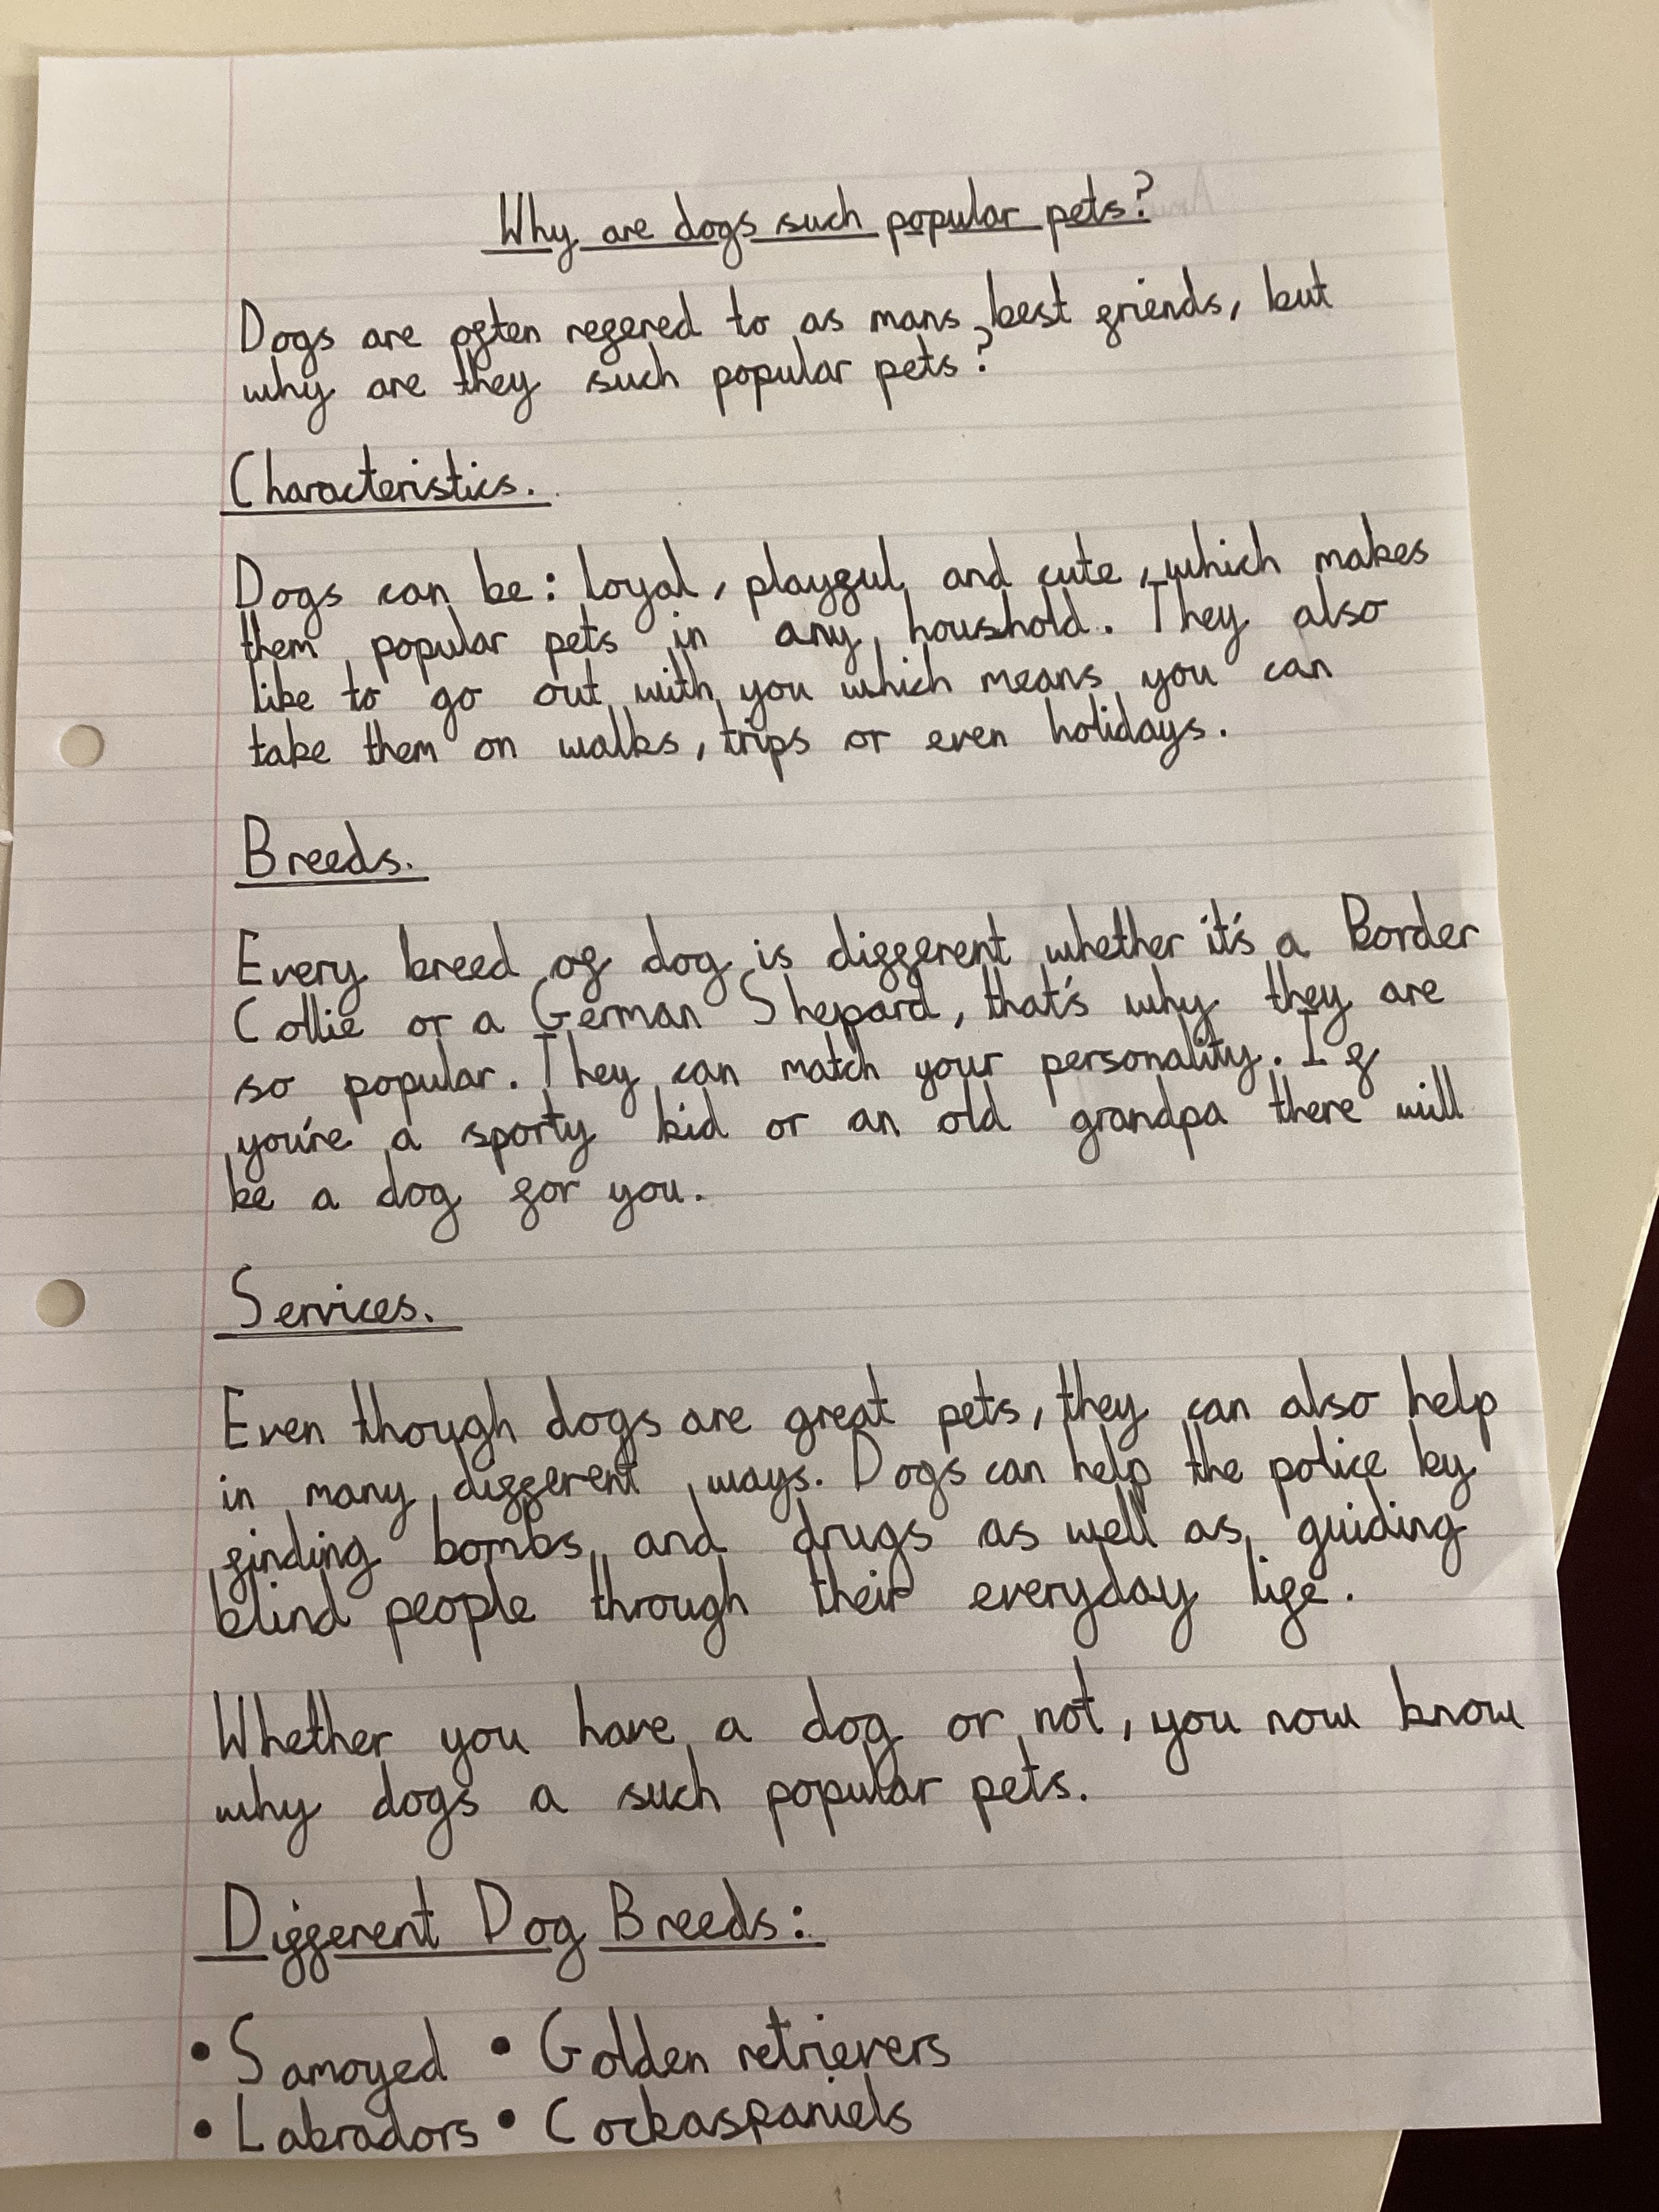 Why are dogs such popular pets?
Dogs are often refered to as mans best friends, but
why are they such popular pets?
Characteristics.
Dogs can be: loyal, playful and cute, which makes
them popular pets in any houshold. They also
like to go out with you which means you can
take them on walks, trips or even holidays.
Breeds.
Every breed of dog is different whether it's a Border
Collie or a German Shepard, that's why they are
so popular. They can match your personality. If
you're a sporty kid or an old grandpa there will
be a dog for you.
Services.
Even though dogs are great pets, they can also help
in many different ways. Dogs can help the police by
finding bombs and drugs as well as guiding
blind people through their everyday life.
Whether you have a dog or not, you now know
why dogs a such popular pets.
Different Dog Breeds:
• Samoyed • Golden retrievers
• Labradors • Cockaspaniels